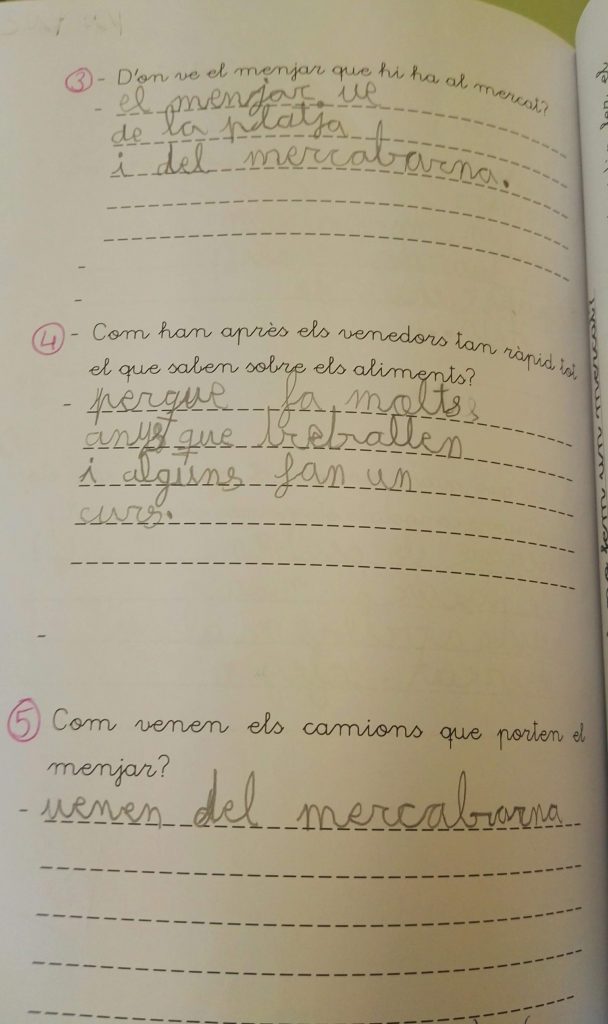 3 - D'on ve el menjar que hi ha al mercat?
- el menjar ve
de la platja
i del mercabarna.
4 - Com han après els venedors tan ràpid tot
el que saben sobre els aliments?
- perque fa molts
anys que treballen
i alguns fan un
curs.
5 Com venen els camions que porten el
menjar?
- venen del mercabarna